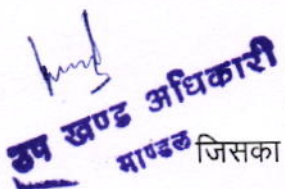 उप खण्ड अधिकारी
माण्डल
जिसका